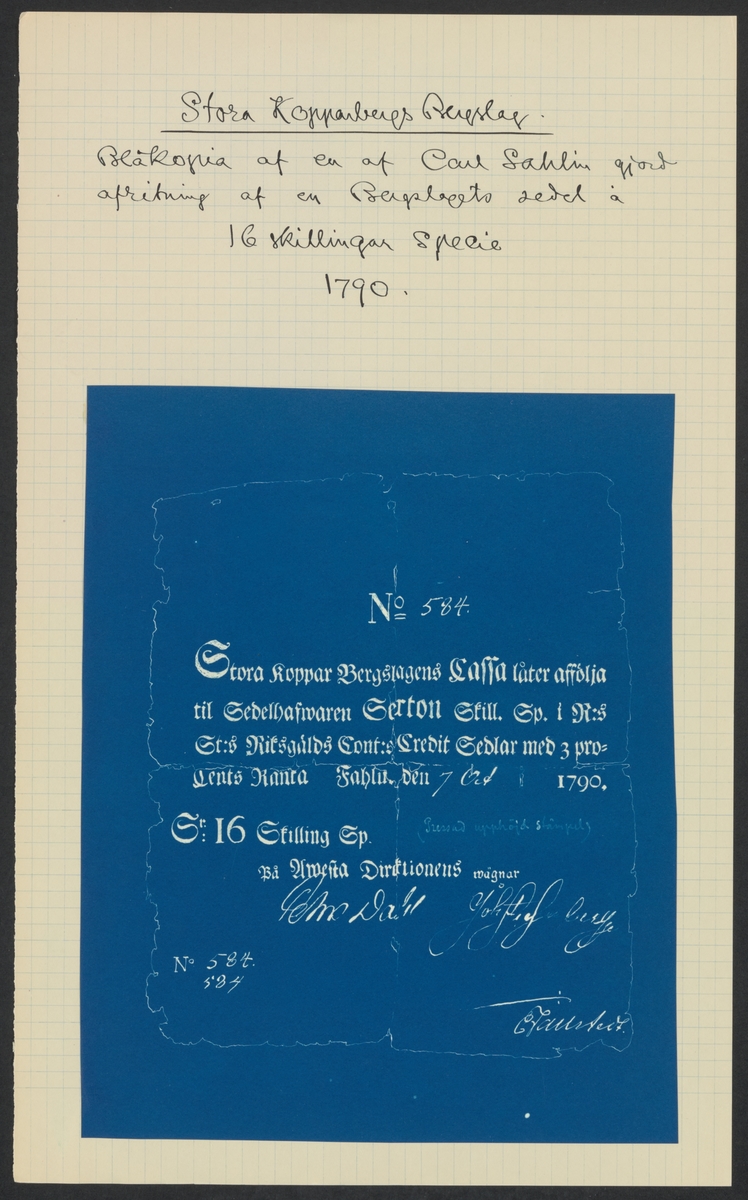 Stora Kopparbergs Bergslag.
Blåkopia af en af Carl Sahlin gjord
afritning af en Bergslagets sedel à
16 skillingar Specie
1790.
No 584.
Stora Koppar Bergslagens Cassa låter afföllja
til Sedelhafwaren Sexton Skill. Sp. i R:s
St:s Riksgälds Cont:s Credit Sedlar med 3 pro-
Cents Ränta Fahlu, den 7 Oct 1790.
Sr: 16 Skilling Sp. (Pressad upphöjd stämpel)
På Awesta Dirktionens wägnar
Dahl
No 584.
584